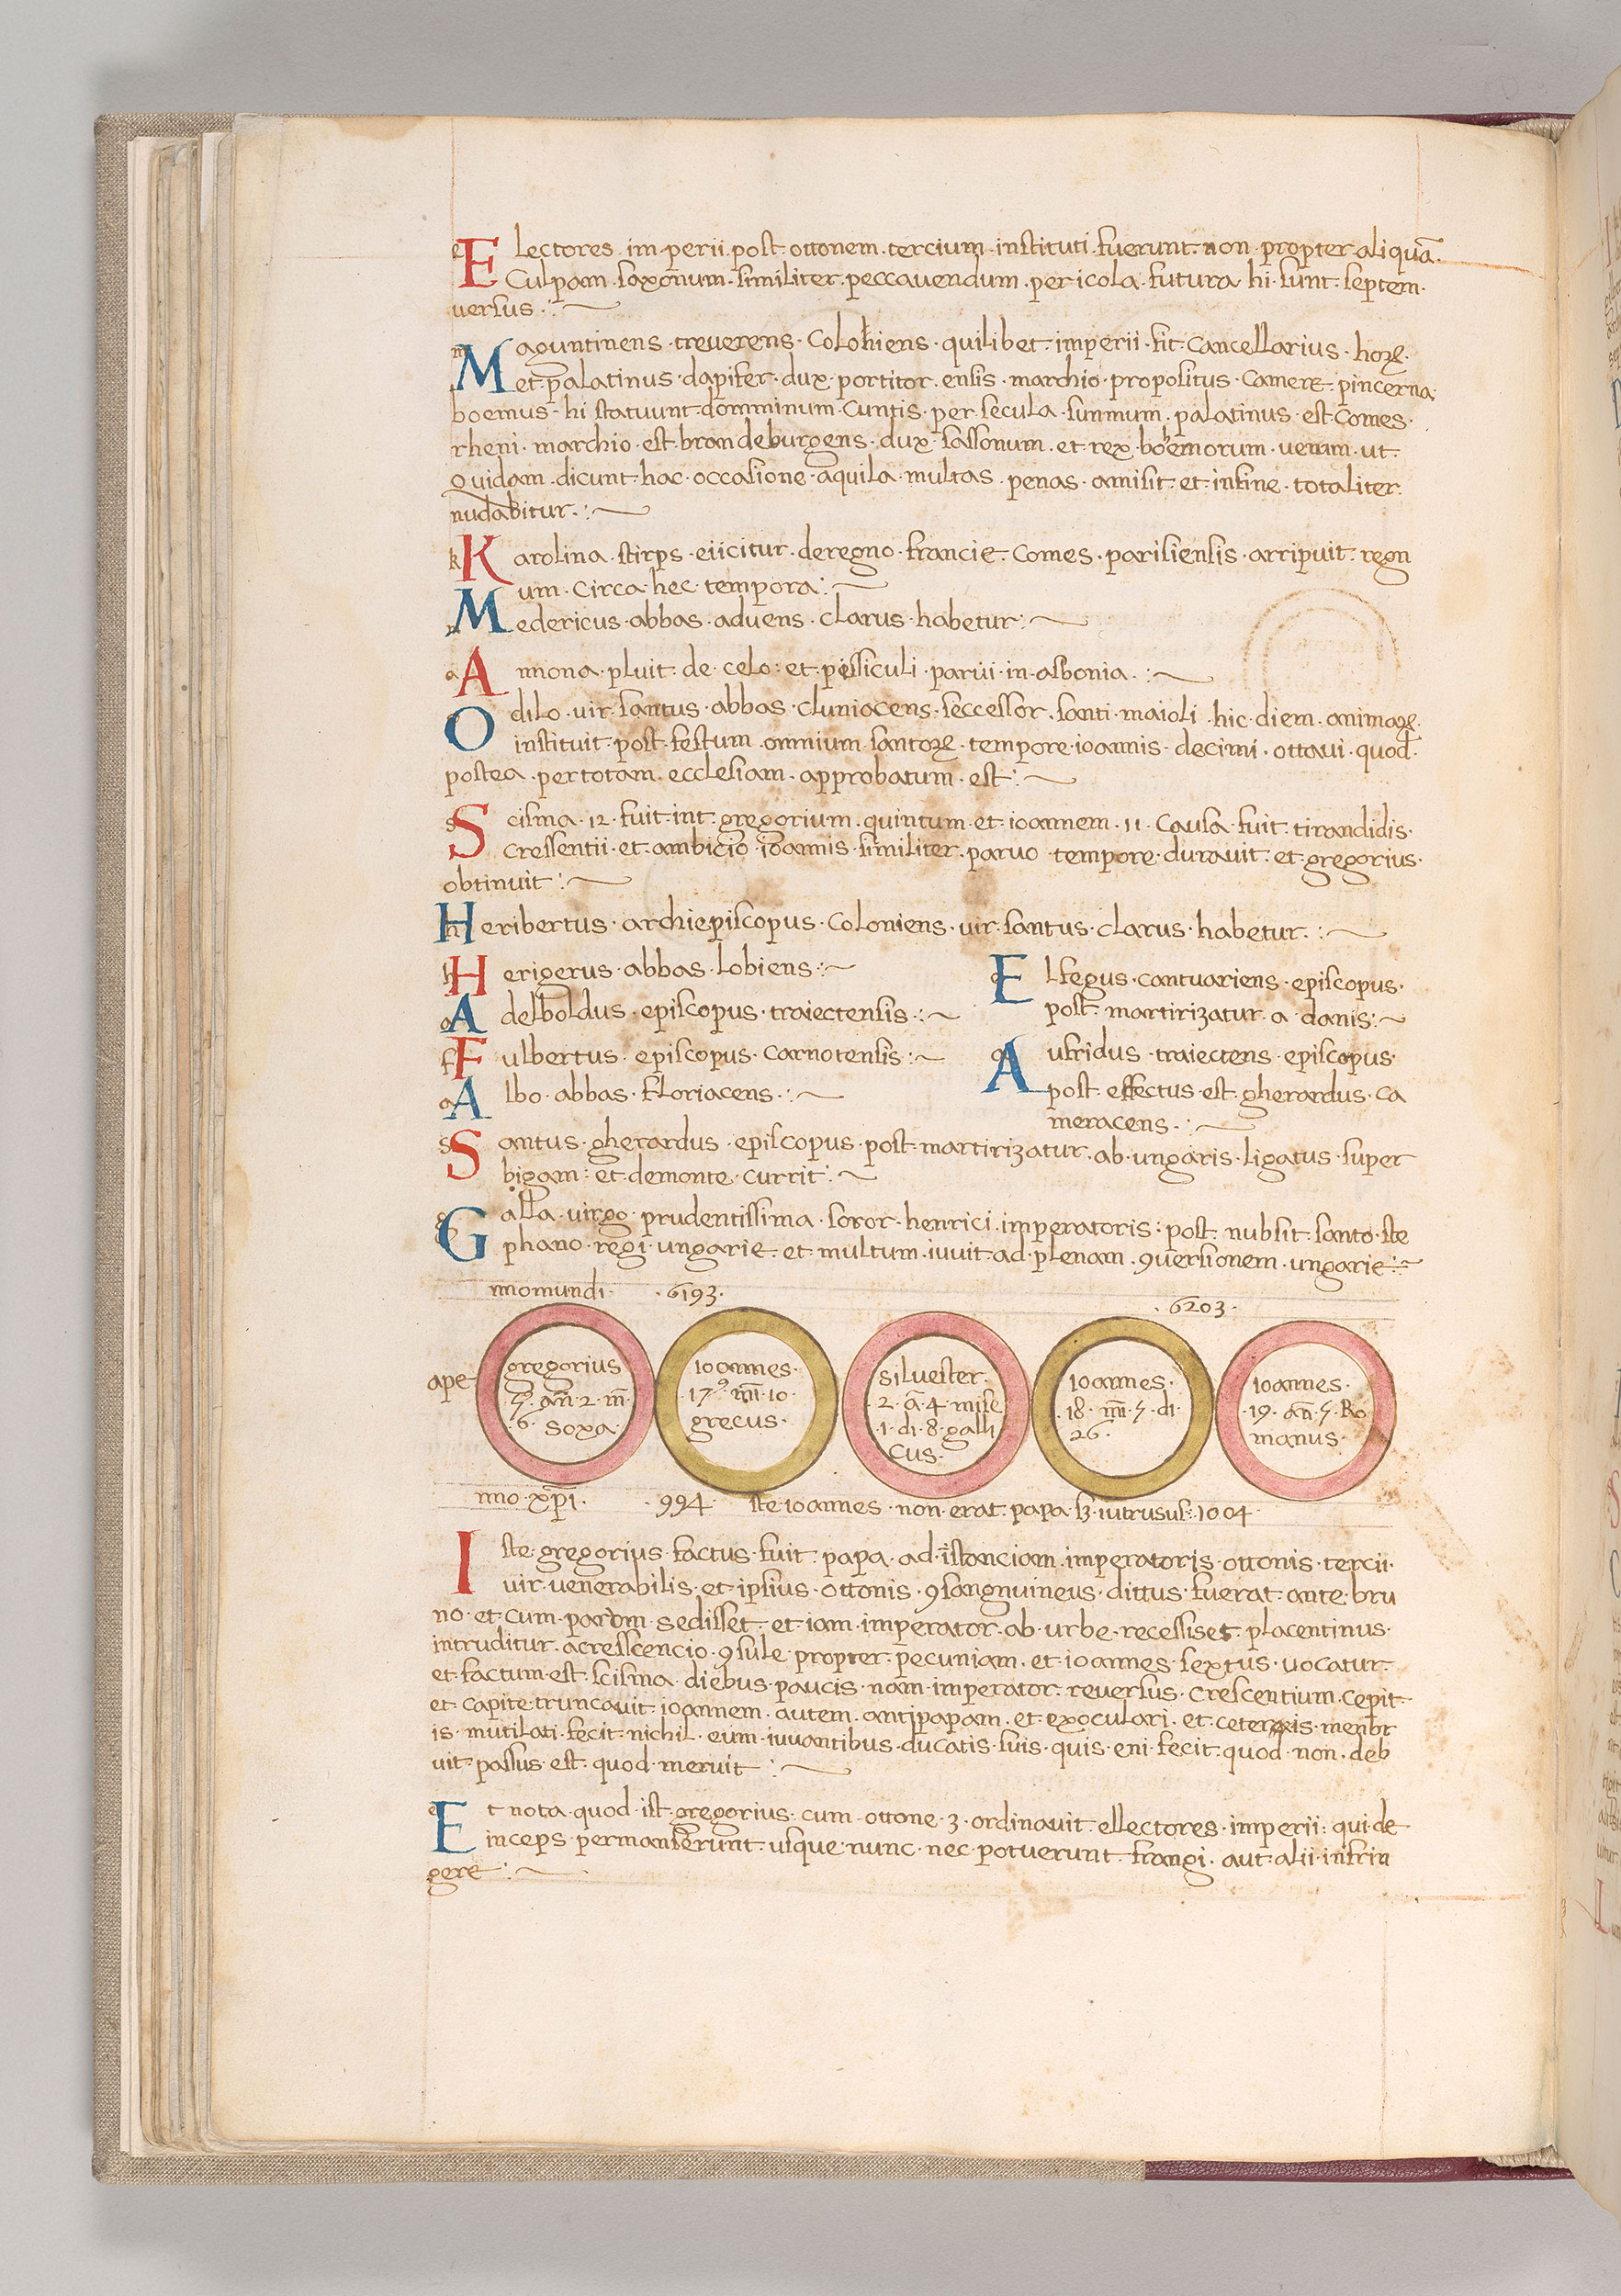 Electores · im·perii · post · ottonem · tercium · instituti · fuerunt · non · propter · aliquā ·
Culpam · saxonum · similiter · peccauendum · pericola · futura · hi · sunt · septem ·
uersus · :
Maguntinens · treuerens · Coloniens · quilibet · imperii · fit · Cancellarius · horꝝ ·
et · palatinus · dapifer · dux · portitor · ensis · marchio · propositus · Camere · pincerna ·
boemus · hi statuunt · domminum · Cuntis · per · secula · summum · palatinus · est · Comes ·
rheni · marchio · est · brandeburgens · dux · sassonum · et · rex · bohemorum · uerum · ut ·
Quidam · dicunt · hac · occasione · aquila · multas · penas · amisit · et · infine · totaliter ·
nudabitur · :
Karolina · stirps · eiicitur · deregno · francie · Comes · parisiensis · arripuit · regn
um · Circa · hec · tempora :
Medericus · abbas · aduens · clarus · habetur :
Annona · pluit · de · celo : et · pissiculi · parui · in · asbonia · :
Odilo · uir · santus · abbas · cluniacens · seccessor · santi · maioli · hic · diem · animaꝝ ·
instituit · post · festum · omnium · santoꝝ · tempore · ioannis · decimi · ottaui · quod ·
postea · pertotam · ecclesiam · approbatum · est :
Scisma · 12 · fuit · int · gregorium · quintum · et · ioannem · 11 · Causa · fuit · tirandidis ·
Cressentii · et · ambicio · ioannis · similiter · paruo · tempore · durauit · et · gregorius ·
obtinuit :
Heribertus · archiepiscopus · Coloniens · uir · santus · clarus · habetur · :
Herigerus · abbas · lobiens :
Adelboldus · episcopus · traiectensis · :
Fulbertus · episcopus · Carnotensis :
Albo · abbas · floriacens · :
Elfegus · cantuariens · episcopus ·
post · martirizatur · a · danis :
Aufridus · traiectens · episcopus ·
post · effectus · est · gherardus · ca
meracens · :
Santus · gherardus · episcopus · post · martirizatur · ab · ungaris · ligatus · super
bigam : et · demonte · currit :
Galla · uirgo · prudentissima · soror · henrici · imperatoris : post · nubsit · santo · ste
phano · regi · ungarie · et · multum · iuuit · ad · plenam · ꝯuersionem · ungarie :
nnomundi · · 6193 · · 6203 ·
ape
gregorius
5 · an̄ · 2 · m̄ ·
· 6 · soxa ·
ioannes ·
· 17⁹ · m̄ · 10 ·
grecus ·
siluester ·
· 2 · ā · 4 · mise
· 1 · di · 8 · galli
cus ·
ioannes ·
· 18 · m̄ · 5 · di ·
26 ·
ioannes ·
· 19 · an̄ · 5 · Ro
manus ·
nno · xp̄i · · 994 · ste ioannes · non · erat · papa · sꝫ · intrusus : 1004 ·
Iste · gregorius · factus · fuit · papa · ad · īstanciam · imperatoris · ottonis · tercii ·
uir · uenerabilis · et · ipsius · ottonis · ꝯsangnuineus · dittus · fuerat · ante · bru
no · et · cum · parom · sedisset · et · iam · imperator · ab · urbe · recessiset · placentinus ·
intruditur · acresscencio · ꝯsule · propter · pecuniam · et · ioannes · sextus · uocatur ·
et · factum · est · scisma · diebus · paucis · nam · imperator · reuersus · Crescentium · cepit ·
et · capite · truncauit · ioannem · autem · antipapam · et · exoculari · et · ceteris · menbr
is · mutilati · fecit · nichil · eum · iuuantibus · ducatis · suis · quis · eni · fecit · quod · non · deb
uit · passus · est · quod · meruit :
Et nota · quod · ist · gregorius · cum · ottone · 3 · ordinauit · ellectores · imperii : qui · de
inceps · permanserunt · usque · nunc · nec · potuerunt · frangi · aut · alii · infrin
gere :